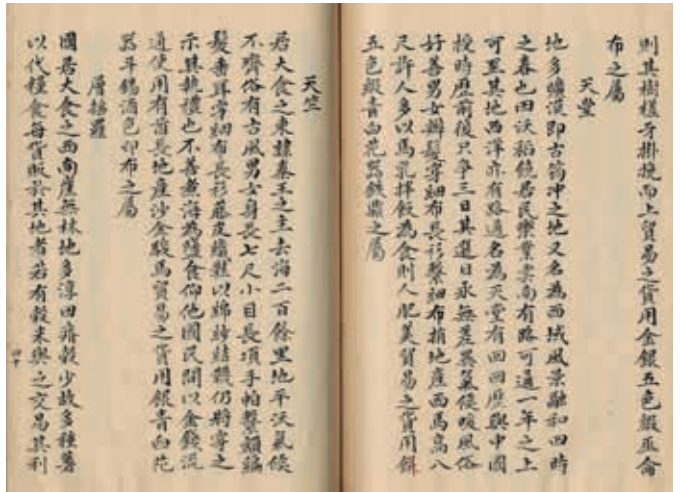 則其樹槎牙掛挽而上貿易之貨用金銀五色緞巫侖
布之屬
天堂
地多曠漠即古筠冲之地又名為西域風景融和四時
之春也田沃稻饒居民樂業雲南有路可通一年之上
可至其地西洋亦有路通名為天堂有回回曆與中國
授時曆前後只爭三日其選日永無差異氣候暖風俗
好善男女辮髮穿細布長衫繫細布捎地產西馬高八
尺許人多以馬乳拌飯為食則人肥美貿易之貨用銀
五色緞青白花器鉄鼎之屬
天竺
居大食之東隸秦王之主去海二百餘里地平沃氣候
不齊俗有古風男女身長七尺小目長項手帕繫額編
髮垂耳穿細布長衫藤皮織鞋以綿紗結韈仍將穿之
示其執禮也不善煮海為鹽食仰他國民間以金錢流
通使用有酋長地產沙金駿馬貿易之貨用銀青白花
器斗錫酒色印布之屬
層搖羅
國居大食之西南崖無林地多淳田瘠穀少故多種薯
以代糧食每貨販於其地者若有穀米與之交易其利
四十